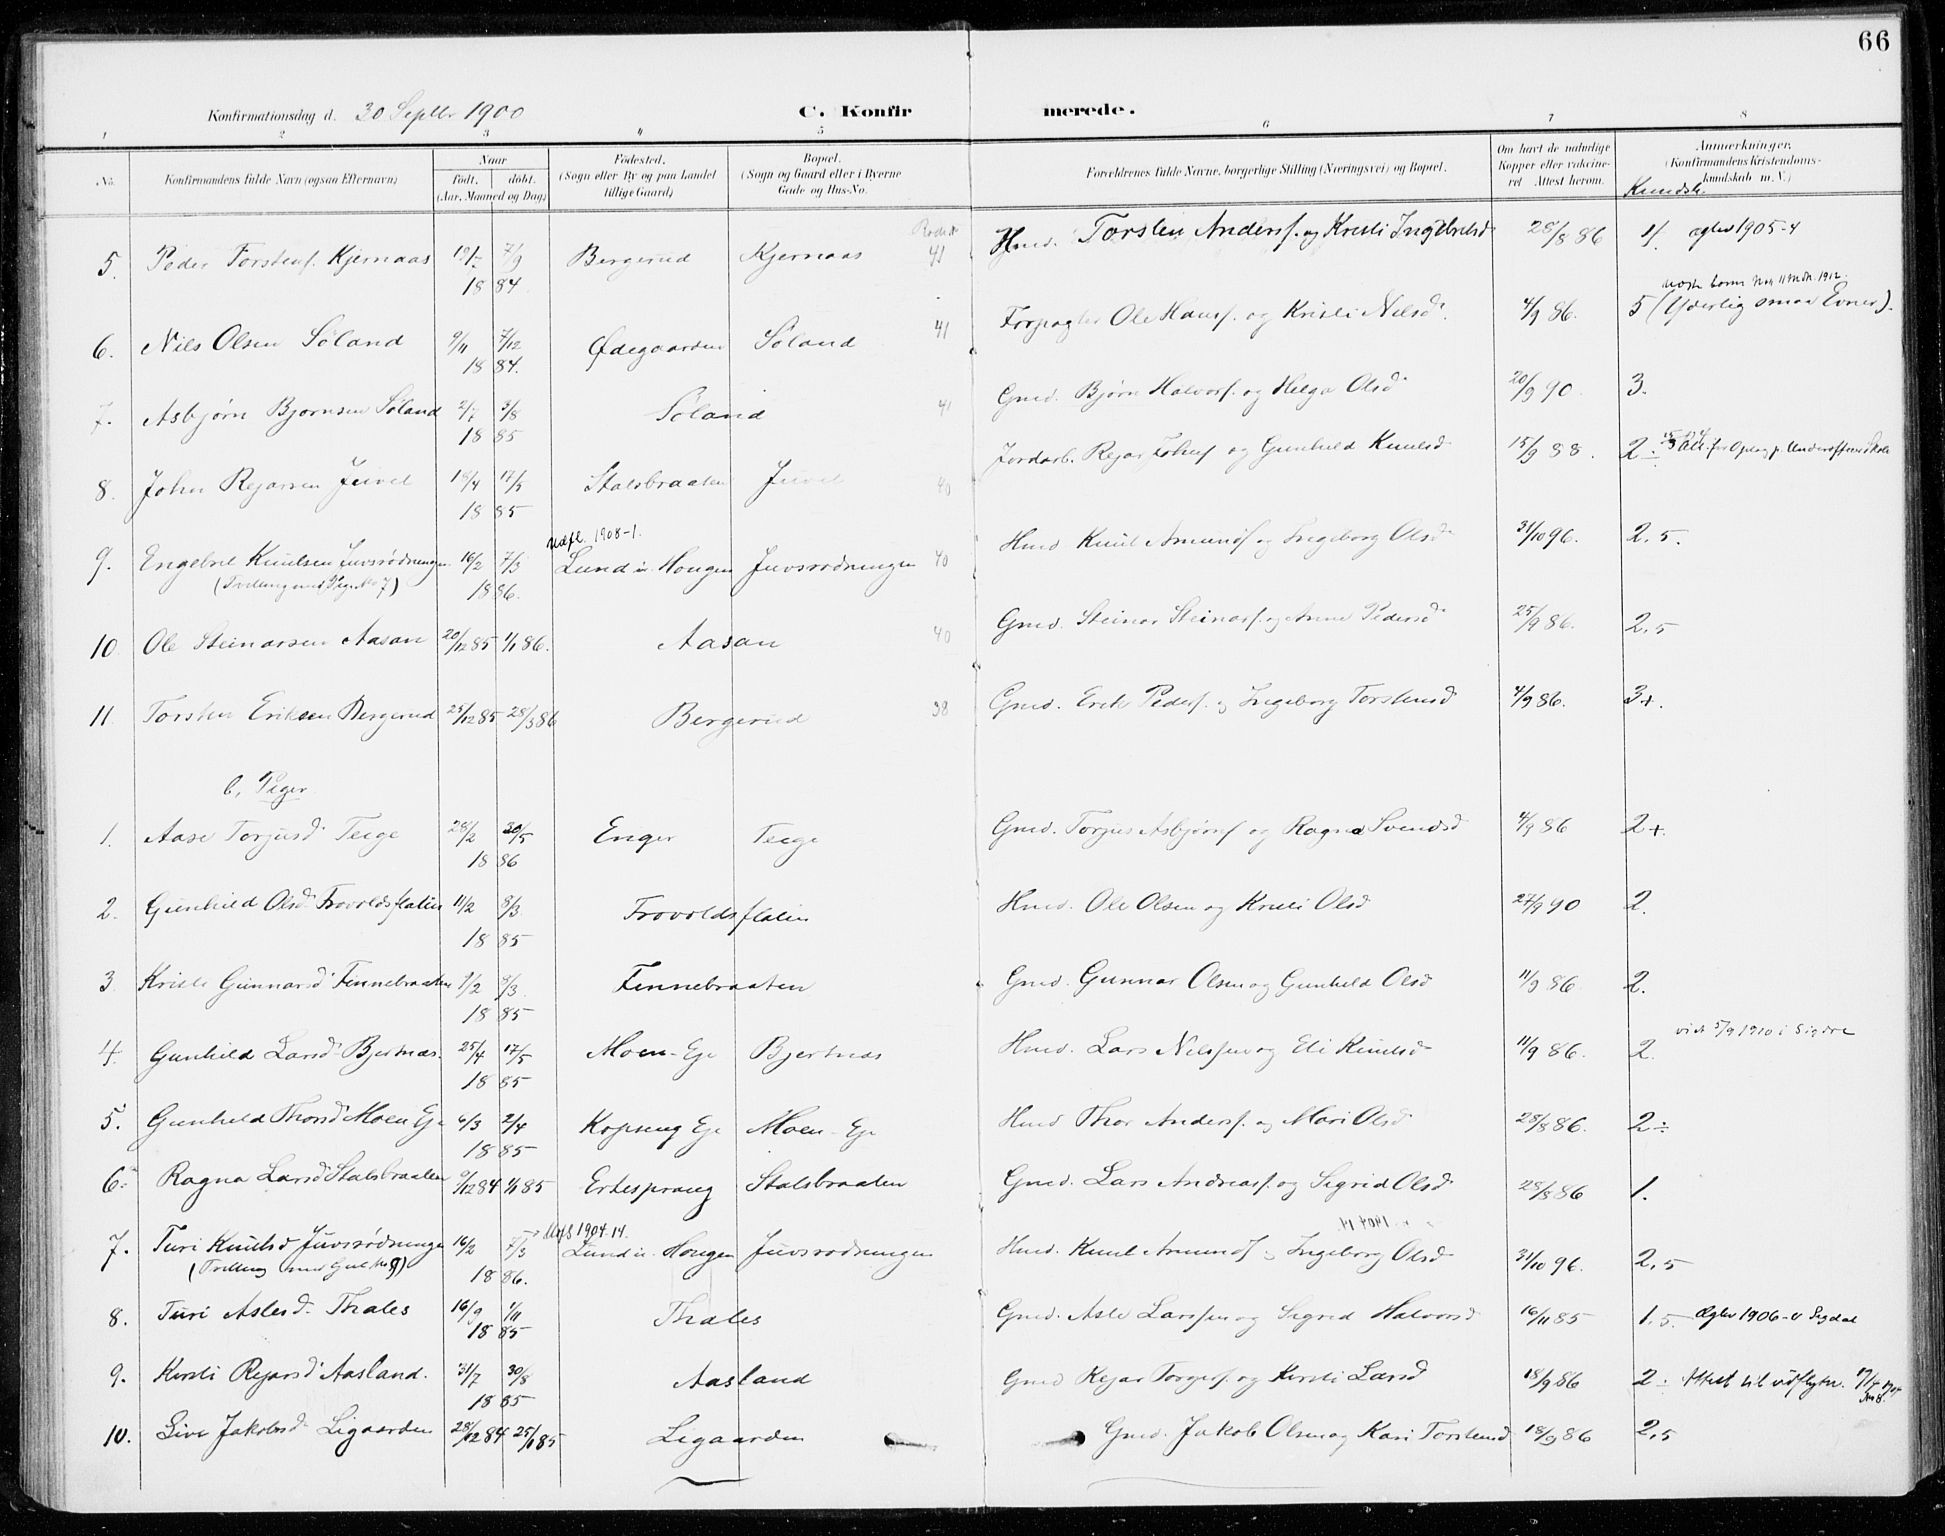 66
Konfirmationsdag d. 30 Septbr 1900
C. Konfirmerede.
1 2 3 4 5 6 7 8
No. Konfirmandens fulde Navn (ogsaa Efternavn) Naar Født, døbt. (Aar, Maaned og Dag) Fødested. (Sogn eller By og paa Landet tillige Gaard) Bopæl. (Sogn og Gaard eller i Byerne Gade og Hus-No. Forældrenes fulde Navne, borgerlige Stilling (Næringsvei) og Bopæl. Om havt de naturlige Kopper eller vaccineret Attest herom. Anmerkninger, (Konfirmandens Kristendomskundskab m.V.) Kundsk.
5. Peder Torstens. Kjernaas 7/9 1884 Bergerud Kjernaas 41 Hmd. Torsten Anders. og Kristi Ingebretsd. 28/8 86 1/. 1905-4
6. Nils Olsen Søland 9/11 7/12 1884. Ødegaarden Søland 41 Forpagter Ole Hans. og Kristi Nilsd. 4/9 86. 5 (Yderlig smaa Evner). 1912.
7. Asbjørn Bjørnsen Søland 2/7 3/8 1885 Søland 41 Gmd. Bjørn Halvors. og Helga Olsd. 20/9 90. 3.
8. John Rejarsen Juvel 19/4 17/5 1885 Stalsbraaten Juvel 40 Jordarb. Rejar Johns. og Gunhild Knutsd. 15/9 88. 2 ÷
Udfl. 1908-1.
9. Engebret Knutsen Juvsrødningen 16/2 7/3 1886. Lund u. Hougen Juvsrødningen 40 Hmd. Knut Amunds. og Ingeborg Olsd. 31/10 96. 2,5.
(Tvilling med Pige No 7)
10. Ole Steinarsen Aasan 20/12 85 1/1 86. Aasan 40 Gmd. Steinar Steinars. og Anne Pedersd. 25/9 86. 2,5
11. Torsten Eriksen Bergerud 25/12 85 28/3 86 Bergerud 38 Gmd. Erik Peders. og Ingeborg Torstensd. 4/9 86. 3+.
b, Piger
1. Aase Torjusd. Teige 28/2 30/5 1886 Enger Teige Gmd. Torjus Asbjørns. og Ragna Svendsd. 4/9 86 2+.
2. Gunhild Olsd. Frovoldsflatin 11/2 8/3 1885 Frovoldsflatin Hmd. Ole Olsen og Kristi Olsd. 27/9 90 2.
3. Kristi Gunnarsd. Finnebraaten 9/2 8/3 1885 Finnebraaten Gmd. Gunnar Olsen og Gunhild Olsd. 11/9 86. 2.
4. Gunhild Larsd. Bjertnæs. 25/4 17/5 1885 Moen-Eje Bjertnæs Hmd. Lars Nilssen og Eli Knutsd. 11/9 86. 2. viet 5/9 1910 i Sigdal
5. Gunhild Thorsd. Moen Eje 6/3 2/4 1885 Kopseng Eje Moen-Eje Hmd. Thor Anders. og Mari Olsd. 28/8 86. 2÷
6. Ragna Larsd. Stalsbraaten 9/12 84 1/1 85 Ertesprang Stalsbraaten Gmd. Lars Andreas. og Sigrid Olsd. 28/8 86 1.
Utfl 1904.14.
7. Turi Knutsd. Juvsrødningen 16/2 7/3 1886. Lund u. Hougen Juvsrødningen Hmd. Knut Amunds. og Ingeborg Olsd. 31/10 96. 2,5
(Tvilling med Gut No 9)
8. Turi Aslesd. Thales 16/9 1/11 1885 Thales Gmd. Asle Larssen og Sigrid Halvorsd. 16/11 85 1,5. 1906-4 Sigdal
9. Kristi Rejarsd. Aasland. 31/7 30/8 1885 Aasland Gmd. Rejar Torgers. og Kristi Larsd. 18/9 86 2÷ Attest til udflytn.
10. Live Jakobsd. Ligaarden 28/12 84 25/1 85 Ligaarden Gmd. Jakob Olsen og Kari Torstensd. 18/9 86 2,5